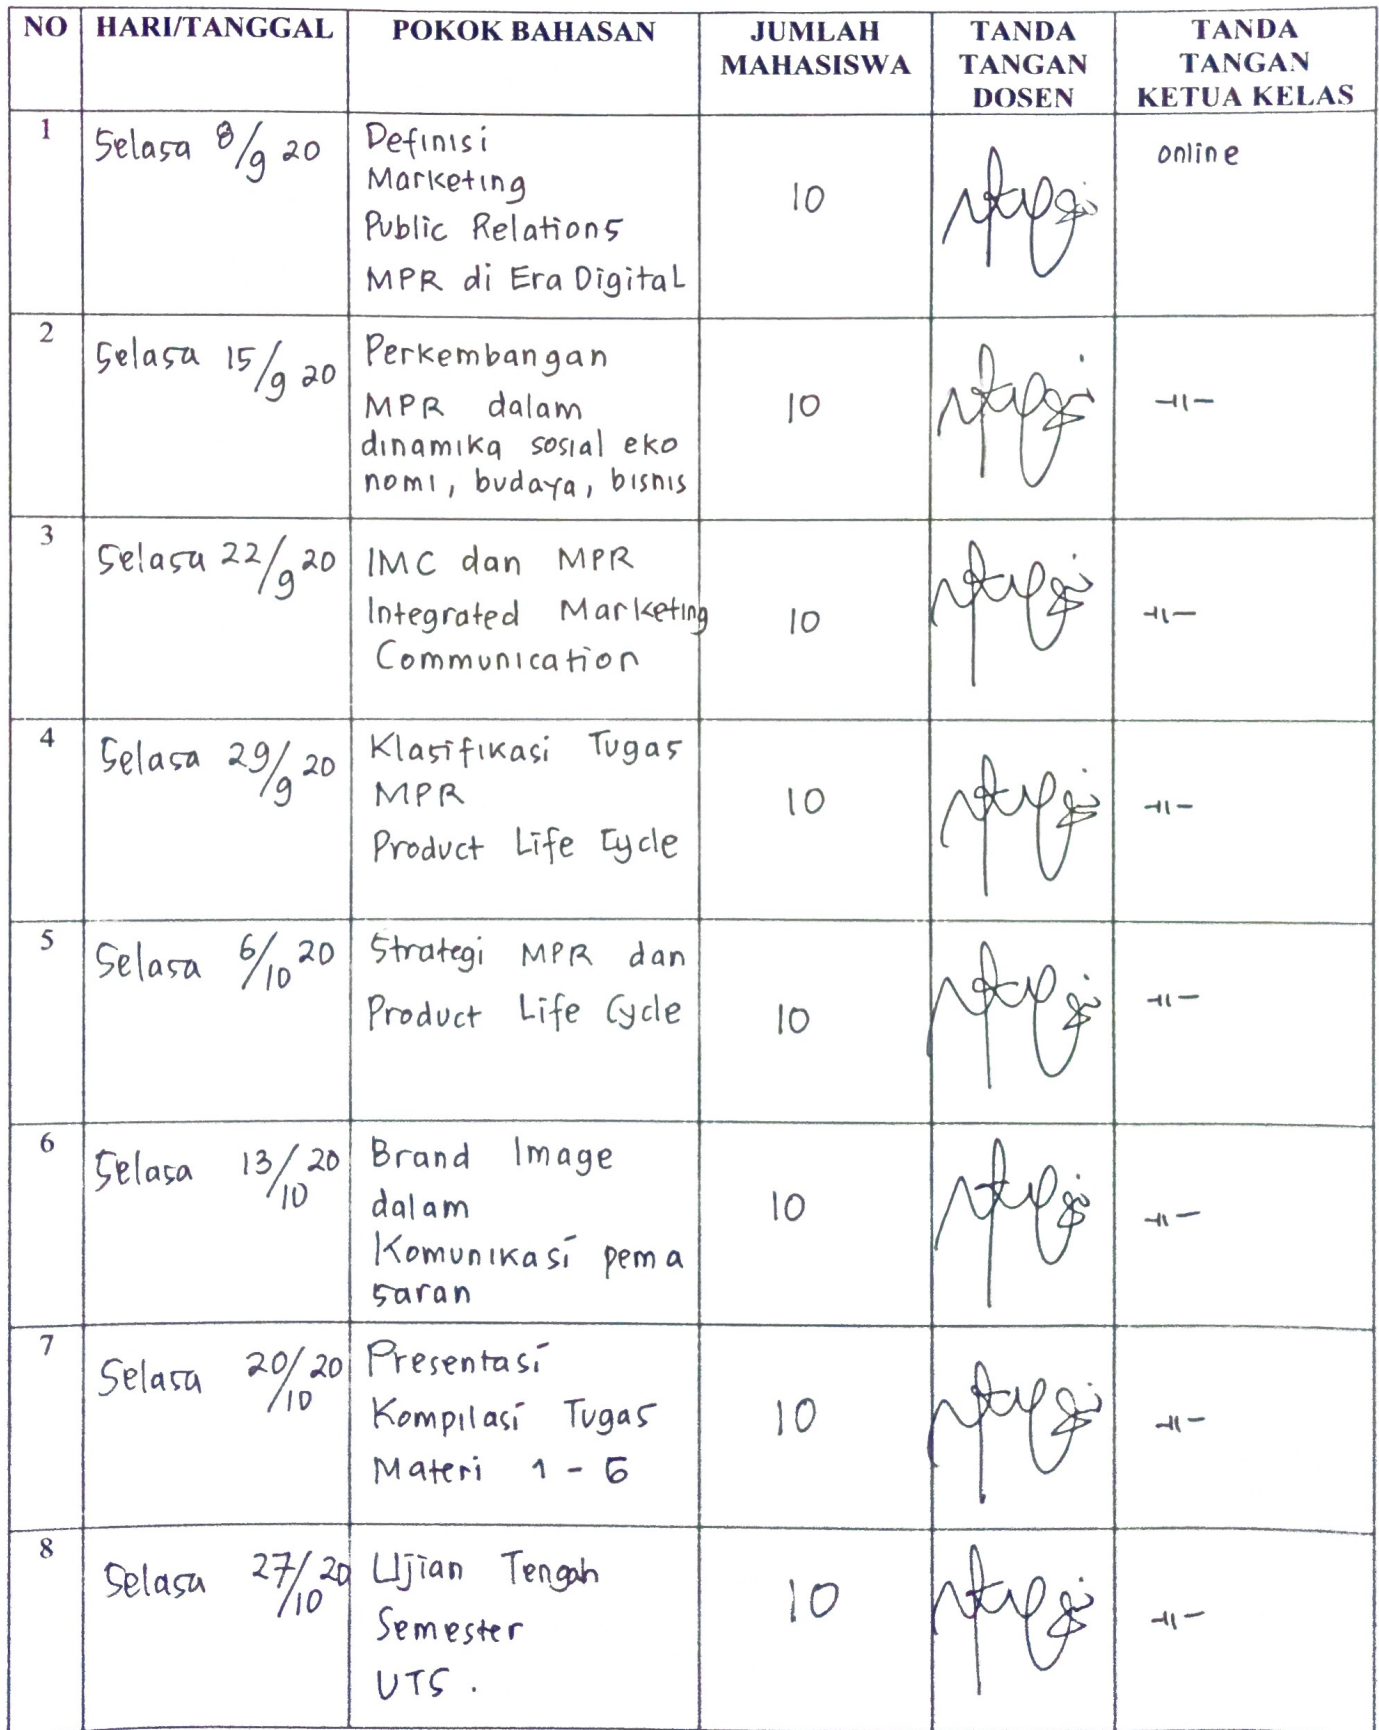 NO HARI/TANGGAL POKOK BAHASAN JUMLAH MAHASISWA TANDA TANGAN DOSEN TANDA TANGAN KETUA KELAS
1 Selasa 8/9 20
Definisi
Marketing
Public Relations
MPR di Era Digital
10
online
2 Selasa 15/9 20
Perkembangan
MPR dalam
dinamika sosial eko
nomi, budaya, bisnis
10
-11-
3 Selasa 22/9 20
IMC dan MPR
Integrated Marketing
Communication
10
-11-
4 Selasa 29/9 20
Klasifikasi Tugas
MPR
Product Life Cycle
10
-11-
5 Selasa 6/10 20
Strategi MPR dan
Product Life Cycle
10
-11-
6 Selasa 13/10 20
Brand Image
dalam
Komunikasi pema
saran
10
-11-
7 Selasa 20/10 20
Presentasi
Kompilasi Tugas
Materi 1 - 6
10
-11-
8 Selasa 27/10 20
Ujian Tengah
Semester
UTS.
10
-11-